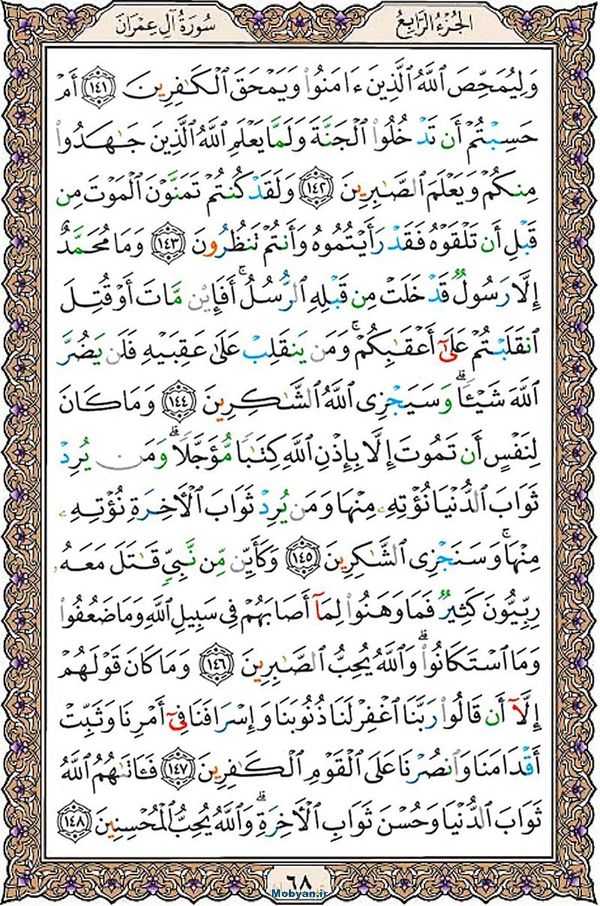 الجُزءُ الرَّابِعُ سُورَةُ آلِ عِمْرَانَ
وَلِيُمَحِّصَ ٱللَّهُ ٱلَّذِينَ ءَامَنُوا۟ وَيَمْحَقَ ٱلْكَـٰفِرِينَ ١٤١ أَمْ
حَسِبْتُمْ أَن تَدْخُلُوا۟ ٱلْجَنَّةَ وَلَمَّا يَعْلَمِ ٱللَّهُ ٱلَّذِينَ جَـٰهَدُوا۟
مِنكُمْ وَيَعْلَمَ ٱلصَّـٰبِرِينَ ١٤٢ وَلَقَدْ كُنتُمْ تَمَنَّوْنَ ٱلْمَوْتَ مِن
قَبْلِ أَن تَلْقَوْهُ فَقَدْ رَأَيْتُمُوهُ وَأَنتُمْ تَنظُرُونَ ١٤٣ وَمَا مُحَمَّدٌ
إِلَّا رَسُولٌ قَدْ خَلَتْ مِن قَبْلِهِ ٱلرُّسُلُ ۚ أَفَإِي۟ن مَّاتَ أَوْ قُتِلَ
ٱنقَلَبْتُمْ عَلَىٰٓ أَعْقَـٰبِكُمْ ۚ وَمَن يَنقَلِبْ عَلَىٰ عَقِبَيْهِ فَلَن يَضُرَّ
ٱللَّهَ شَيْـًٔا ۗ وَسَيَجْزِى ٱللَّهُ ٱلشَّـٰكِرِينَ ١٤٤ وَمَا كَانَ
لِنَفْسٍ أَن تَمُوتَ إِلَّا بِإِذْنِ ٱللَّهِ كِتَـٰبًا مُّؤَجَّلًا ۗ وَمَن يُرِدْ
ثَوَابَ ٱلدُّنْيَا نُؤْتِهِۦ مِنْهَا وَمَن يُرِدْ ثَوَابَ ٱلْـَٔاخِرَةِ نُؤْتِهِۦ
مِنْهَا ۚ وَسَنَجْزِى ٱلشَّـٰكِرِينَ ١٤٥ وَكَأَيِّن مِّن نَّبِىٍّ قَـٰتَلَ مَعَهُۥ
رِبِّيُّونَ كَثِيرٌ فَمَا وَهَنُوا۟ لِمَآ أَصَابَهُمْ فِى سَبِيلِ ٱللَّهِ وَمَا ضَعُفُوا۟
وَمَا ٱسْتَكَانُوا۟ ۗ وَٱللَّهُ يُحِبُّ ٱلصَّـٰبِرِينَ ١٤٦ وَمَا كَانَ قَوْلَهُمْ
إِلَّآ أَن قَالُوا۟ رَبَّنَا ٱغْفِرْ لَنَا ذُنُوبَنَا وَإِسْرَافَنَا فِىٓ أَمْرِنَا وَثَبِّتْ
أَقْدَامَنَا وَٱنصُرْنَا عَلَى ٱلْقَوْمِ ٱلْكَـٰفِرِينَ ١٤٧ فَـَٔاتَىٰهُمُ ٱللَّهُ
ثَوَابَ ٱلدُّنْيَا وَحُسْنَ ثَوَابِ ٱلْـَٔاخِرَةِ ۗ وَٱللَّهُ يُحِبُّ ٱلْمُحْسِنِينَ ١٤٨
٦٨
Mobyan.ir